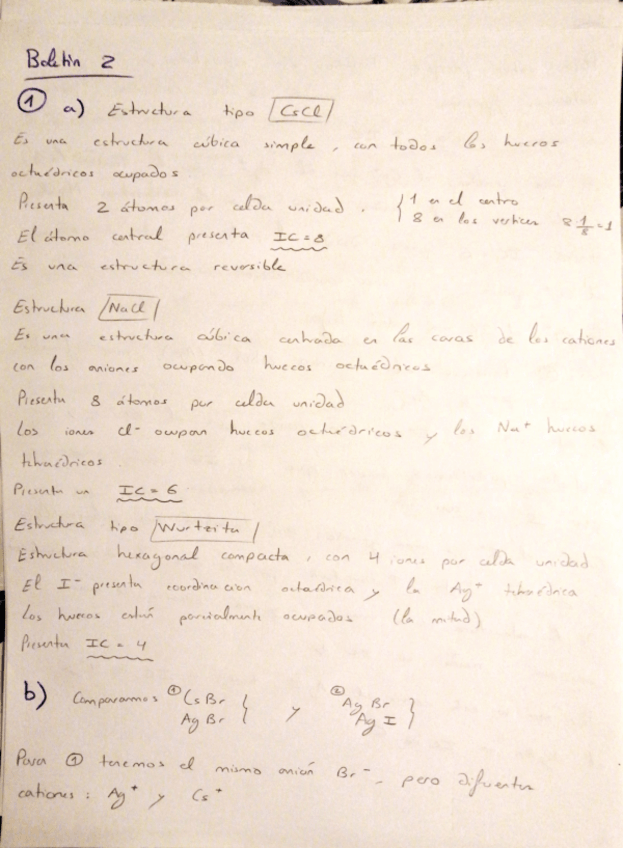 Boletín 2
① a) Estructura tipo CsCl
Es una estructura cúbica simple, con todos los huecos
octuédricos ocupados
Presenta 2 átomos por celda unidad. { 1 en el centro
8 en los vertices 8 1/8 = 1
El átomo central presenta IC = 8
Es una estructura reversible
Estructura NaCl
Es una estructura cúbica centrada en las caras de los cationes
con los aniones ocupando huecos octuédricos
Presenta 8 átomos por celda unidad
Los iones Cl- ocupan huecos octuédricos y los Na+ huecos
tetraédricos
Presenta un IC = 6
Estructura tipo Wurtzita
Estructura hexagonal compacta, con 4 iones por celda unidad
El I- presenta coordinacion octaédrica y la Ag+ tetraédrica
Los huecos están parcialmente ocupados (la mitad)
Presenta IC = 4
b) Comparamos ① CsBr } y ② AgBr }
AgBr AgI
Para ① tenemos el mismo anión Br-, pero diferentes
cationes: Ag+ y Cs+